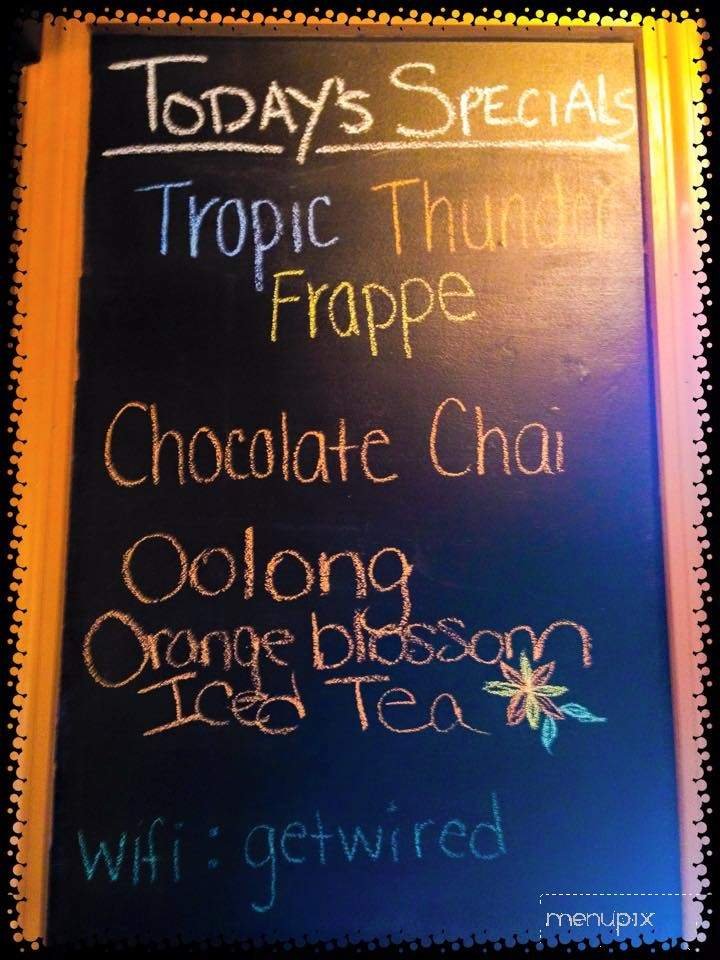 Today's Specials
Tropic Thunder
Frappe
Chocolate Chai
Oolong
Orange blossom
Iced Tea
wifi : getwired
menupix